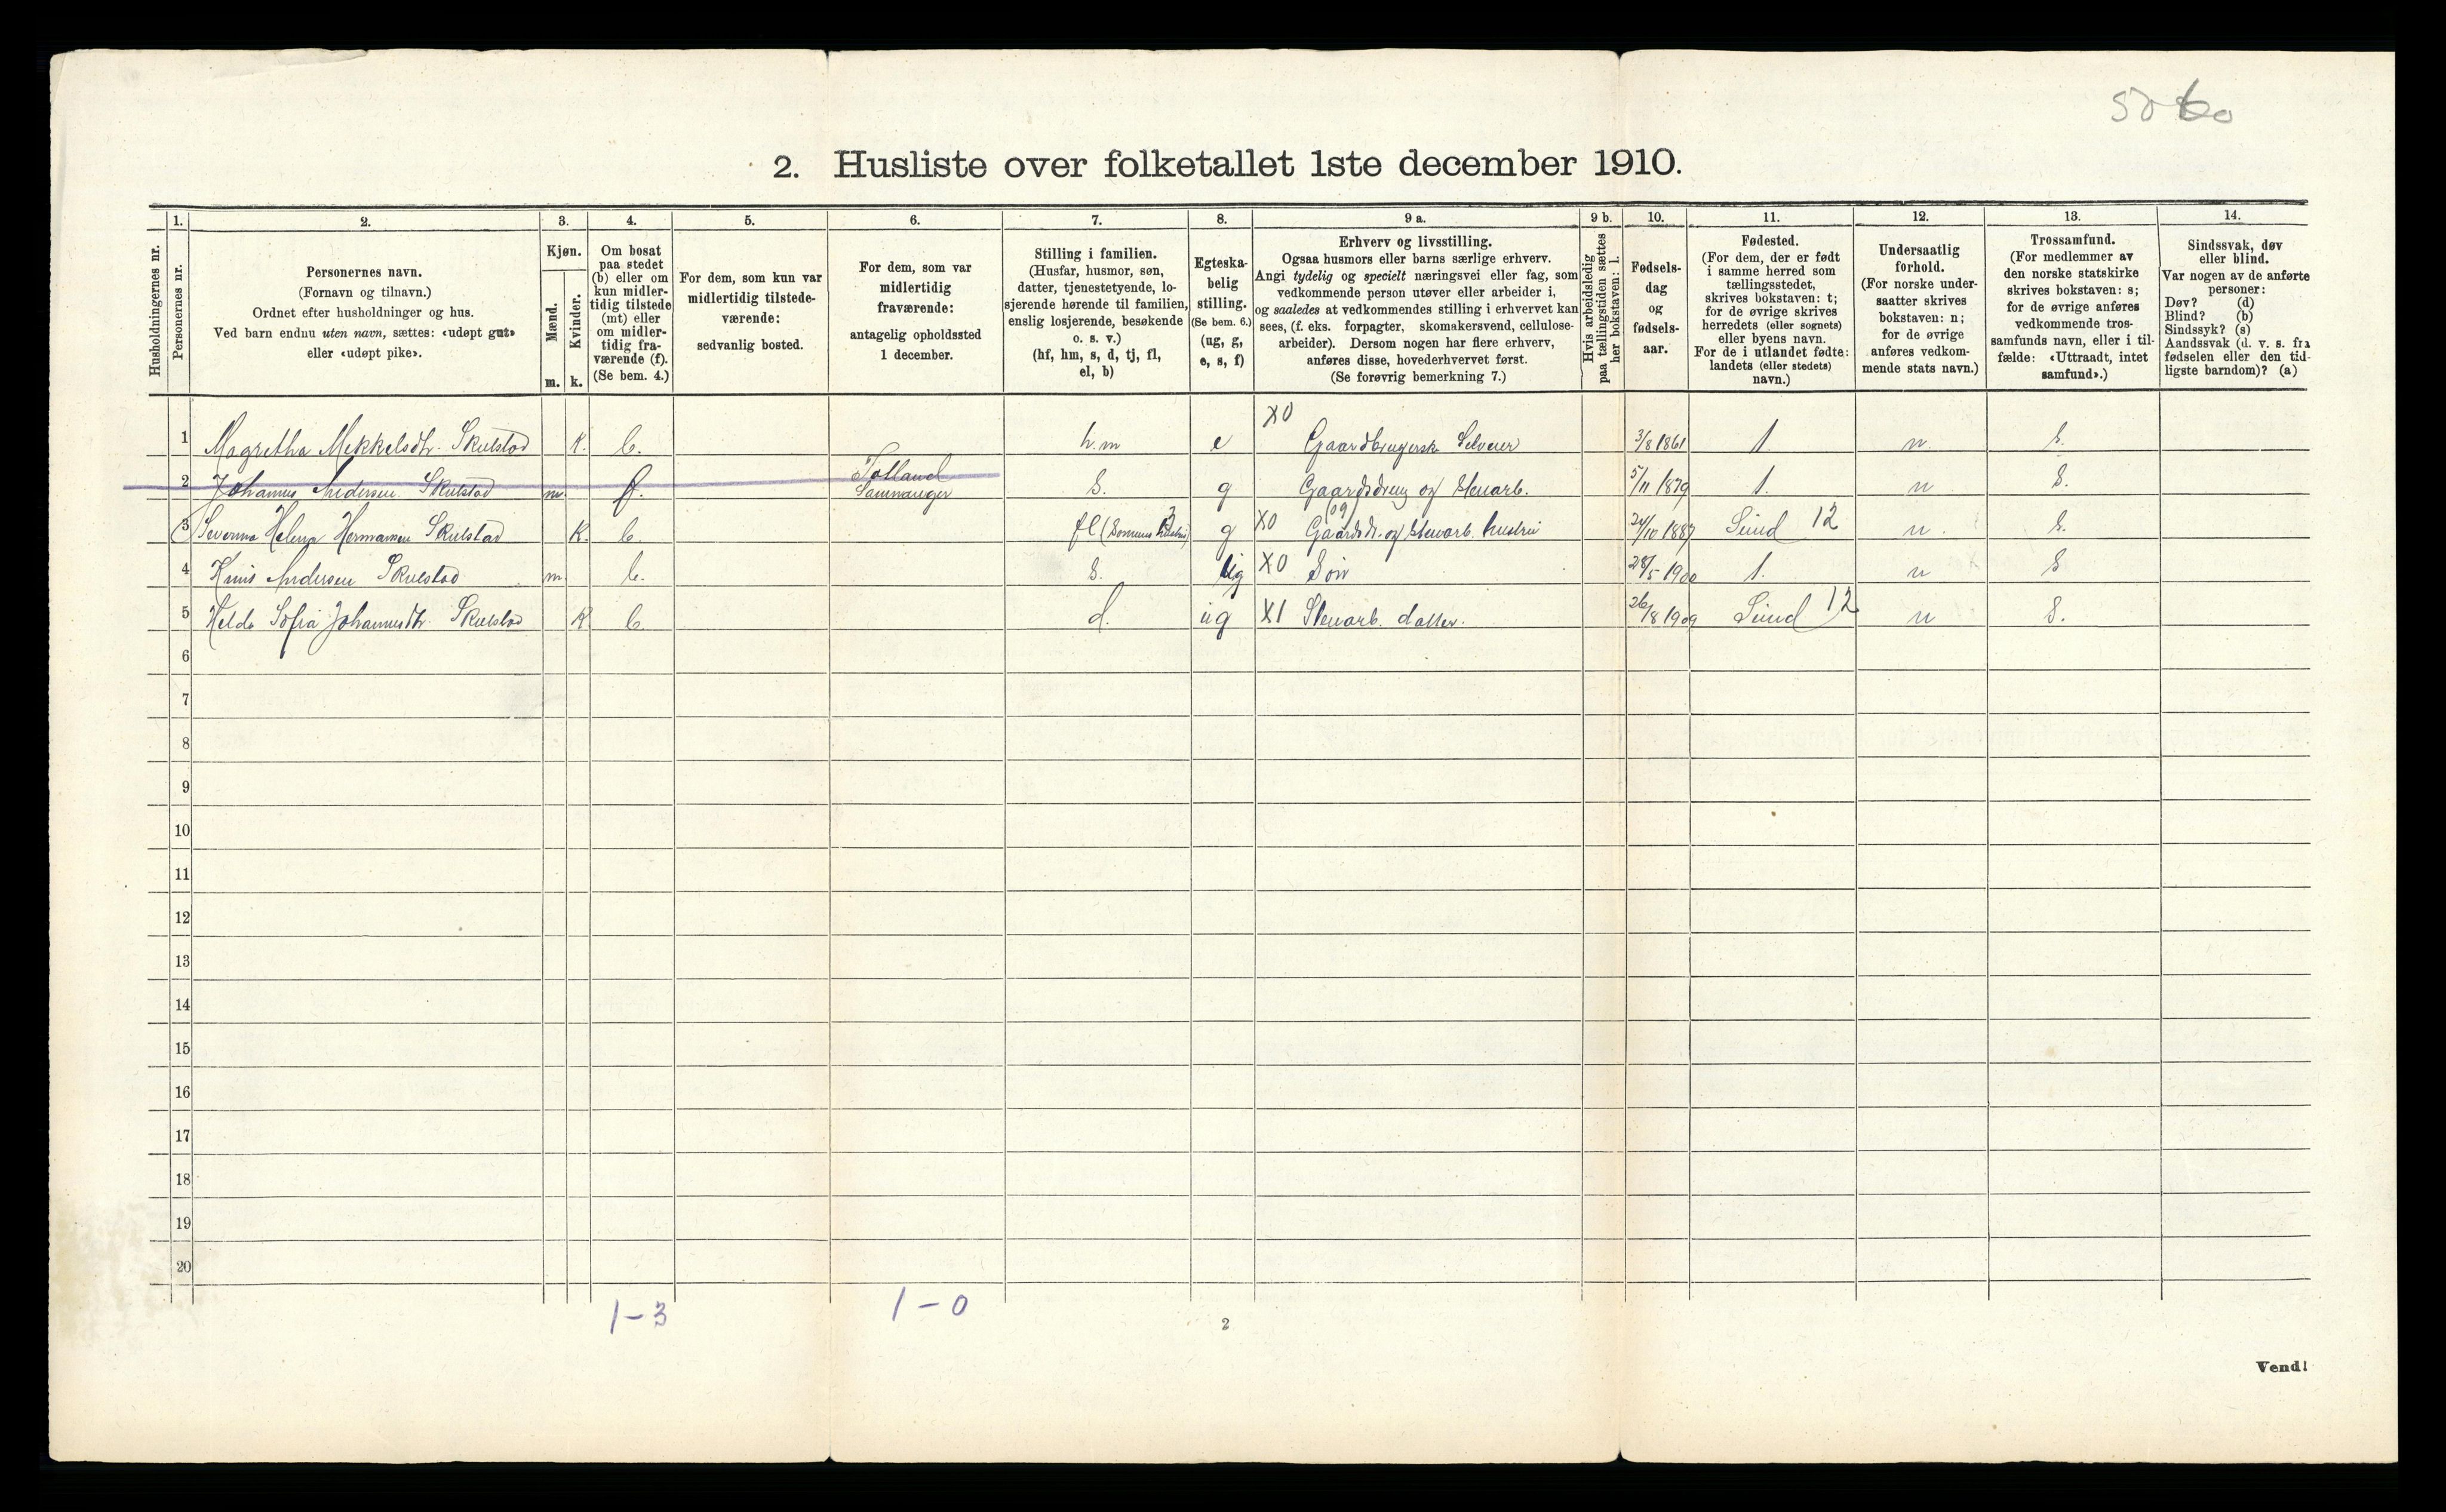 2. Husliste over folketallet 1ste december 1910.
Husholdningernes nr.
1.
Personernes nr.
2.
Personernes navn.
(Fornavn og tilnavn.)
Ordnet efter husholdninger og hus.
Ved barn endnu uten navn, sættes: «udøpt gut»
eller «udøpt pike».
3.
Kjøn.
Mænd.
m.
Kvinder.
k.
4.
Om bosat
paa stedet
(b) eller om
kun midler-
tidig tilstede
(mt) eller
om midler-
tidig fra-
værende (f).
(Se bem. 4.)
5.
For dem, som kun var
midlertidig tilstede-
værende:
sedvanlig bosted.
6.
For dem, som var
midlertidig
fraværende:
antagelig opholdssted
1 december.
7.
Stilling i familien.
(Husfar, husmor, søn,
datter, tjenestetyende, lo-
sjerende hørende til familien,
enslig losjerende, besøkende
o. s. v.)
(hf, hm, s, d, tj, fl,
el, b)
8.
Egteska-
belig
stilling.
(Se bem. 6.)
(ug, g,
e, s, f)
9 a.
Erhverv og livsstilling.
Ogsaa husmors eller barns særlige erhverv.
Angi tydelig og specielt næringsvei eller fag, som
vedkommende person utøver eller arbeider i,
og saaledes at vedkommendes stilling i erhvervet kan
sees, (f. eks. forpagter, skomakersvend, cellulose-
arbeider). Dersom nogen har flere erhverv,
anføres disse, hovederhvervet først.
(Se forøvrig bemerkning 7.)
9 b.
Hvis arbeidsledig
paa tællingstiden sættes
her bokstaven: l.
10.
Fødsels-
dag
og
fødsels-
aar.
11.
Fødested.
(For dem, der er født
i samme herred som
tællingsstedet,
skrives bokstaven: t;
for de øvrige skrives
herredets (eller sognets)
eller byens navn.
For de i utlandet fødte:
landets (eller stedets)
navn.)
12.
Undersaatlig
forhold.
(For norske under-
saatter skrives
bokstaven: n;
for de øvrige
anføres vedkom-
mende stats navn.)
13.
Trossamfund.
(For medlemmer av
den norske statskirke
skrives bokstaven: s;
for de øvrige anføres
vedkommende tros-
samfunds navn, eller i til-
fælde: «Uttraadt, intet
samfund».)
14.
Sindssvak, døv
eller blind.
Var nogen av de anførte
personer:
Døv? (d)
Blind? (b)
Sindssyk? (s)
Aandssvak (d. v. s. fra
fødselen eller den tid-
ligste barndom)? (a)
X0
1 Magretha Mekkelsdtr. Skulstad K. b. h.m e Gaardbrugersk Selveier 3/8 1861 t. n. s.
2 Johannes Andersen Skulstad m f. Samnanger S. g Gaardsdreng og Stenarb. 5/11 1879 t. n S.
3 Severine Helene Hermansen Skulstad K. b. fl g X0 Gaardsdr. og Stenarb. hustru 24/10 1887 Sund 12 n. s.
4 Andersen Skulstad m b. S. ug X0 Søn 28/5 1900 t. n S
5 Helda Sofia Johannesdtr. Skulstad K b. d. ug X1 Stenarb. datter. 26/8 1909 Sund 12 n S.
6
7
8
9
10
11
12
13
14
15
16
17
18
19
20
1-3 1-0
2
Vend!